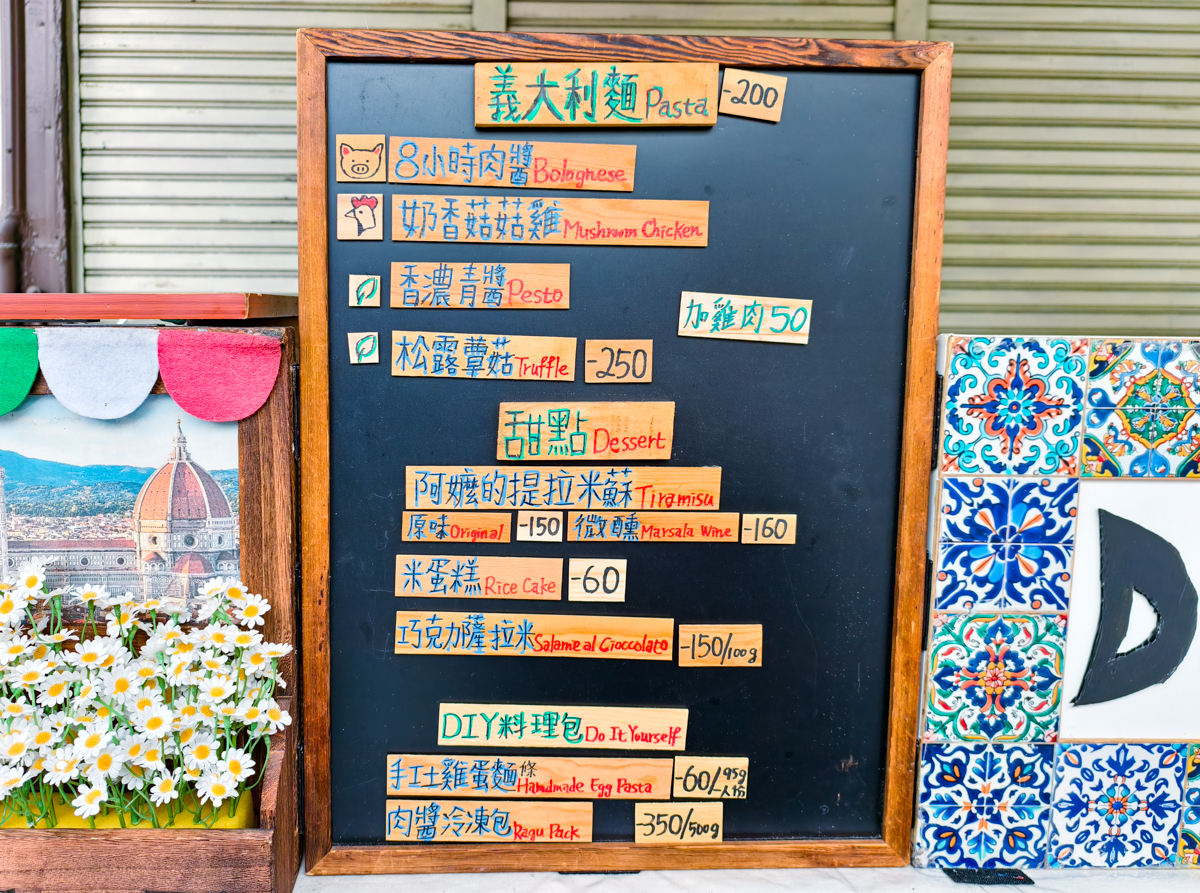 義大利麵 Pasta -200
8小時肉醬 Bolognese
奶香菇菇雞 Mushroom Chicken
香濃青醬 Pesto
加雞肉50
松露蕈菇 Truffle -250
甜點 Dessert
阿嬤的提拉米蘇 Tiramisu
原味 Original -150 微醺 Marsala Wine -160
米蛋糕 Rice Cake -60
巧克力薩拉米 Salame al Cioccolato -150/100g
DIY料理包 Do It Yourself
手工土雞蛋麵條 Handmade Egg Pasta -60/95g 人份
肉醬冷凍包 Ragu Pack -350/500g
D